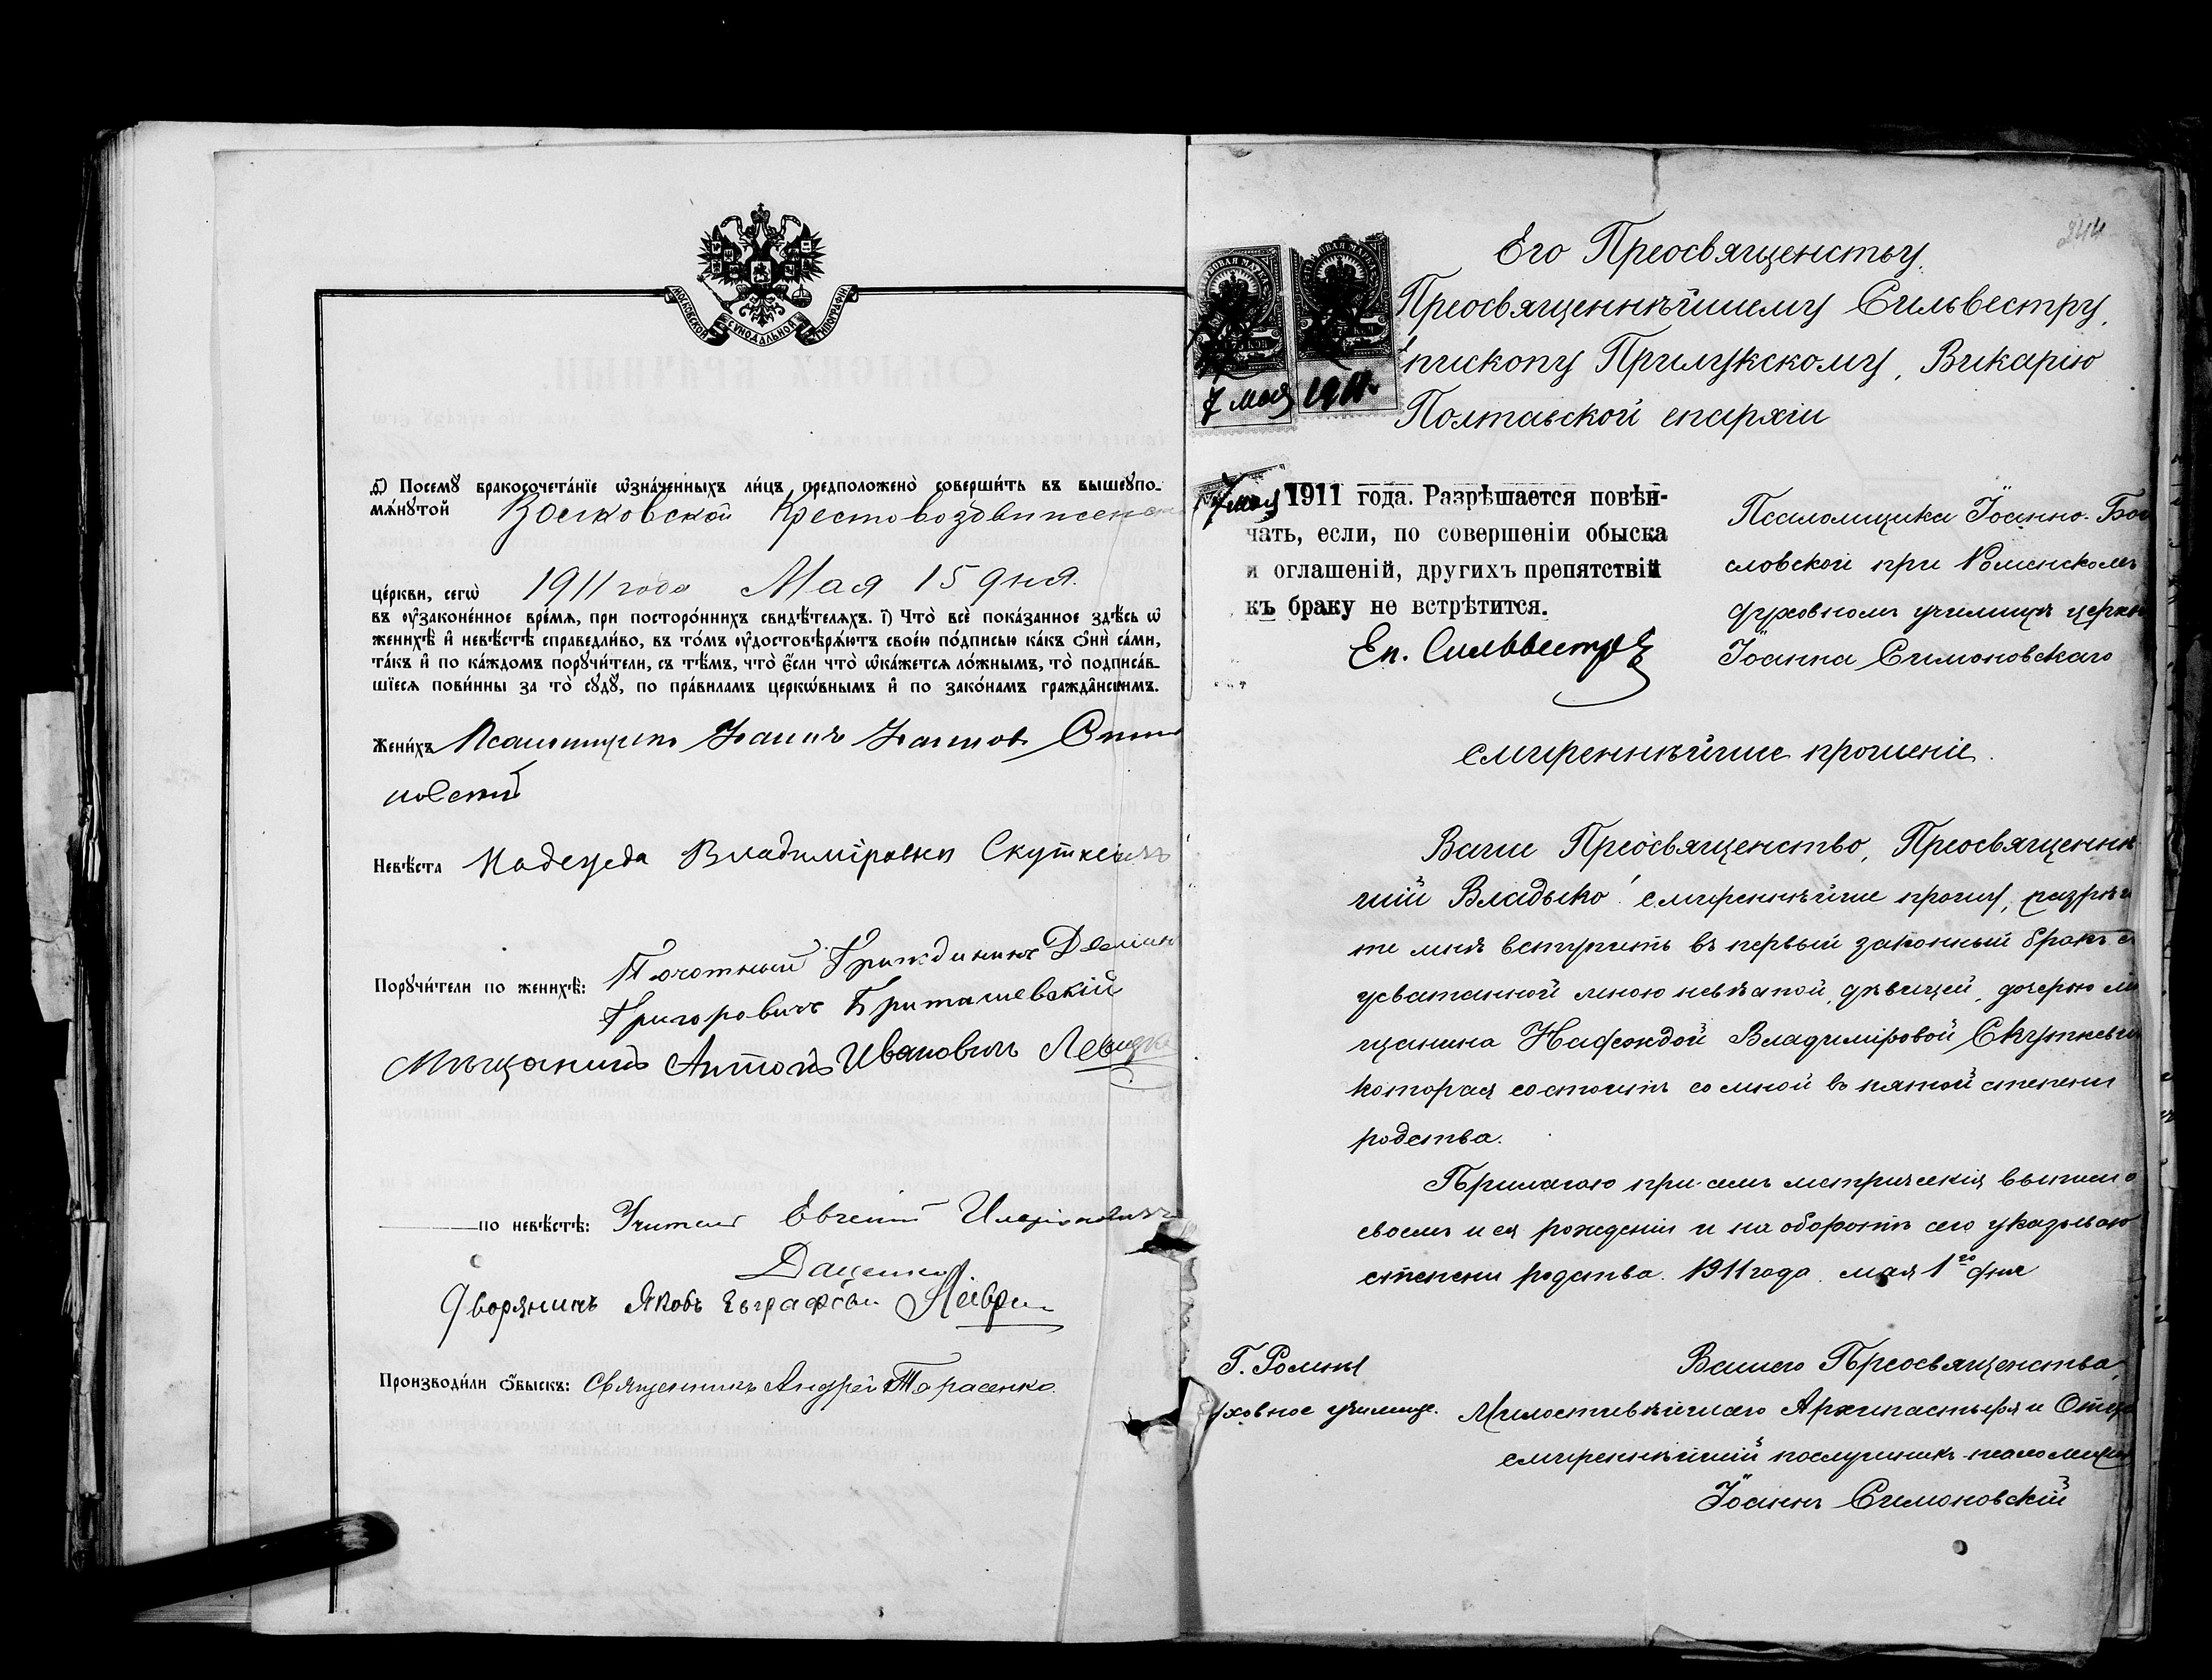 МОСКОВСКОЙ СѴНОДАЛЬНОЙ ТИПОГРАФІИ
Посемꙋ̀ бракосочета́нїе ѡ҆зна́ченныхъ ли́цъ предположено̀ соверши́ть въ вышеꙋпо-
мѧ́нꙋтой Крестовоздвиженск
це́ркви, сегѡ̀ 1911 года Мая 15 дня.
въ ᲂу҆зако́ненное вре́мѧ, при посторо́ннихъ свидѣ́телѧхъ. і҃) Что̀ всѐ пока́занное здѣ́сь ѡ҆
женихѣ̀ и҆ невѣ́стѣ справедли́во, въ то́мъ ᲂу҆достовѣрѧ́ютъ свое́ю по́дписью ка́къ ѻ҆нѝ са́ми,
та́къ и҆ по ка́ждомъ порꙋчи́тели, съ тѣ́мъ, что̀ є҆́сли что̀ ѡ҆ка́жетсѧ ло́жнымъ, то̀ подписа́в-
шїесѧ пови́нны за то̀ сꙋдꙋ̀, по пра́виламъ церкѡ́внымъ и҆ по зако́намъ гражда̑нскимъ.
Жени́хъ Псаломщикъ Іоаннъ Іоаннов Симо
новскій
Невѣ́ста Надежда Владиміровна Скуткевичъ
Порꙋчи́тели по женихѣ̀: Почотный Гражданинъ
Григоровичъ
Мѣщанинъ Антонъ Ивановичъ Левицкі
по невѣ́стѣ: Учитель Евгеній Иларіоновичъ
Даценко
Дворянинъ Яковъ Евграфов
Производи́ли ѻ҆́быскъ: Священникъ Андрей Тарасенко.
244
Его Преосвященству,
Преосвященнѣйшему Сильвестру,
пископу Прилукскому, Викарію
Полтавской епархіи
7 мая 1911.
7 мая 1911 года. Разрѣшается повѣн-
чать, если, по совершеніи обыска
и оглашеній, другихъ препятствій
къ браку не встрѣтится.
Еп. Сильвестръ
Псаломщика Іоанно-Бог
словской при Роменскомъ
духовномъ училищѣ церкв
Іоанна Симоновскаго
смиреннѣйшее прошеніе.
Ваше Преосвященство, Преосвященнѣ
шій Владыко! смиреннѣйше прошу, разрѣши
те мнѣ вступить въ первый законный бракъ съ
усватанной мною невѣстой, дѣвицей, дочерью мѣ
щанина Надеждой Владиміровой Скуткевич
которая состоитъ со мной въ пятой степени
родства.
Прилагаю при семъ метрическія выписи о
своемъ и ея рожденіи и на оборотѣ сего указываю
степени родства. 1911 года мая 1го дня
Г. Ромны
уховное училище.
Вашего Преосвященства,
Милостивѣйшаго Архипастыря и Отца
смиреннѣйшій послушникъ псаломщик
Іоаннъ Симоновскій